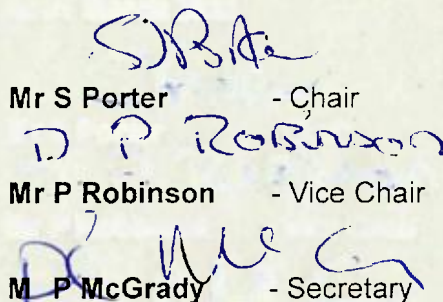 Mr S Porter - Chair
D P ROBINSON
Mr P Robinson - Vice Chair
M P McGrady - Secretary